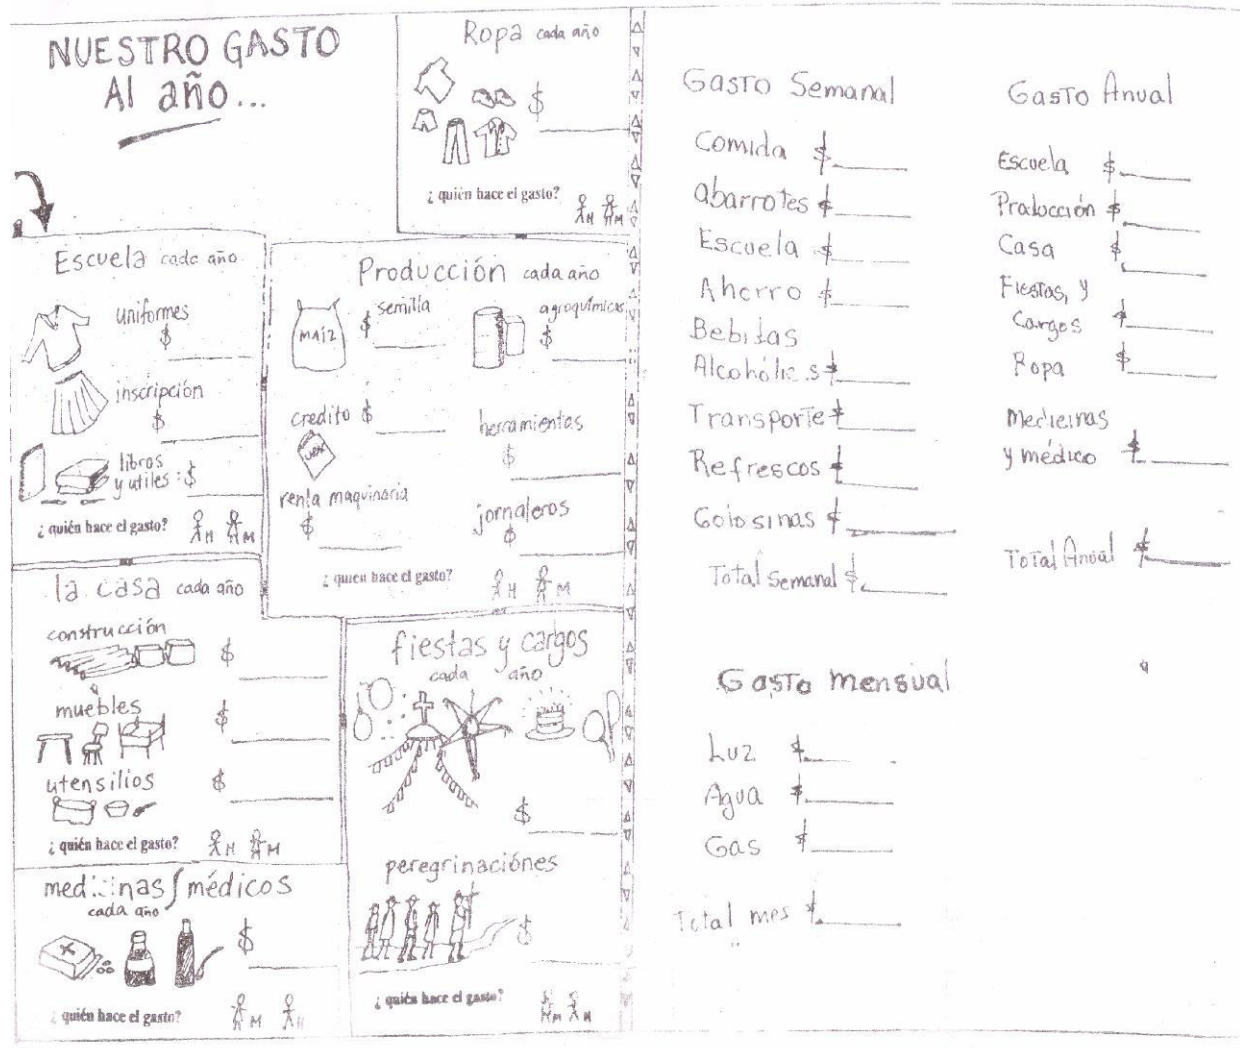 NUESTRO GASTO
Al año...
Ropa cada año
$
¿ quién hace el gasto?
H M
Escuela cada año
uniformes
$
inscripción
$
libros
y utiles : $
¿ quién hace el gasto?
H M
Producción cada año
MAIZ
semilla
$
agroquímicos
$
credito $
herramientas
$
renta maquinaria
$
jornaleros
$
¿ quien hace el gasto?
H M
la casa cada año
construcción
$
muebles
$
utensilios
$
¿ quién hace el gasto?
H M
medicinas / médicos
cada año
$
¿ quién hace el gasto?
M H
fiestas y cargos
cada año
$
peregrinaciónes
$
¿ quién hace el gasto?
M H
Gasto Semanal
Comida $
abarrotes $
Escuela $
Ahorro $
Bebidas
Alcohólicas $
Transporte $
Refrescos $
Golosinas $
Total Semanal $
Gasto mensual
Luz $
Agua $
Gas $
Total mes $
Gasto Anual
Escuela $
Producción $
Casa $
Fiestas, y
Cargos $
Ropa $
Medicinas
y médico $
Total Anual $